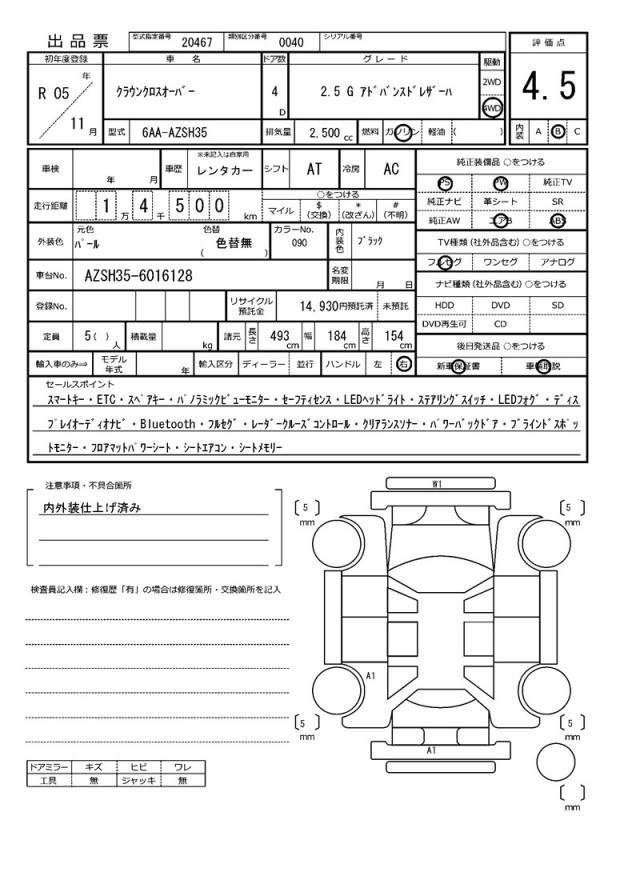 出品票
型式指定番号 20467 類別区分番号 0040 シリアル番号
初年度登録 車名 ドア数 グレード 駆動 評価点
R 05 年 11 月
クラウンクロスオーバー 4 D 2.5 G アドバンスドレザーハ 2WD 4WD 4.5
型式 6AA-AZSH35 排気量 2,500 cc 燃料 ガソリン 軽油 ( ) 内装 A B C
車検 年 月 車歴 ※未記入は自家用 レンタカー シフト AT 冷房 AC
純正装備品 ○をつける
PS PW 純正TV
純正ナビ 革シート SR
純正AW エアB ABS
走行距離 1 万 4 千 5 0 0 km
○をつける
マイル $ (交換) * (改ざん) # (不明)
外装色 元色 パール 色替 色替無 ( ) カラーNo. 090 内装色 ブラック
TV種類 (社外品含む) ○をつける
フルセグ ワンセグ アナログ
車台No. AZSH35-6016128 名変期限 月 日
ナビ種類 (社外品含む) ○をつける
HDD DVD SD
DVD再生可 CD
登録No. リサイクル預託金 14,930円預託済 未預託
定員 5 ( ) 人 積載量 kg 諸元 長さ 493 cm 幅 184 cm 高さ 154 cm
後日発送品 ○をつける
新車保証書 車輌取説
輸入車のみ⇒ モデル年式 年 輸入区分 ディーラー 並行 ハンドル 左 右
セールスポイント
スマートキー・ETC・スペアキー・パノラミックビューモニター・セーフティセンス・LEDヘッドライト・ステアリングスイッチ・LEDフォグ・ディス
プレイオーディオナビ・Bluetooth・フルセグ・レーダークルーズコントロール・クリアランスソナー・パワーバックドア・ブラインドスポッ
トモニター・フロアマットパワーシート・シートエアコン・シートメモリー
注意事項・不具合箇所
内外装仕上げ済み
検査員記入欄:修復歴「有」の場合は修復箇所・交換箇所を記入
W1
5 mm
5 mm
A1
5 mm
5 mm
A1
mm
ドアミラー キズ ヒビ ワレ
工具 無 ジャッキ 無